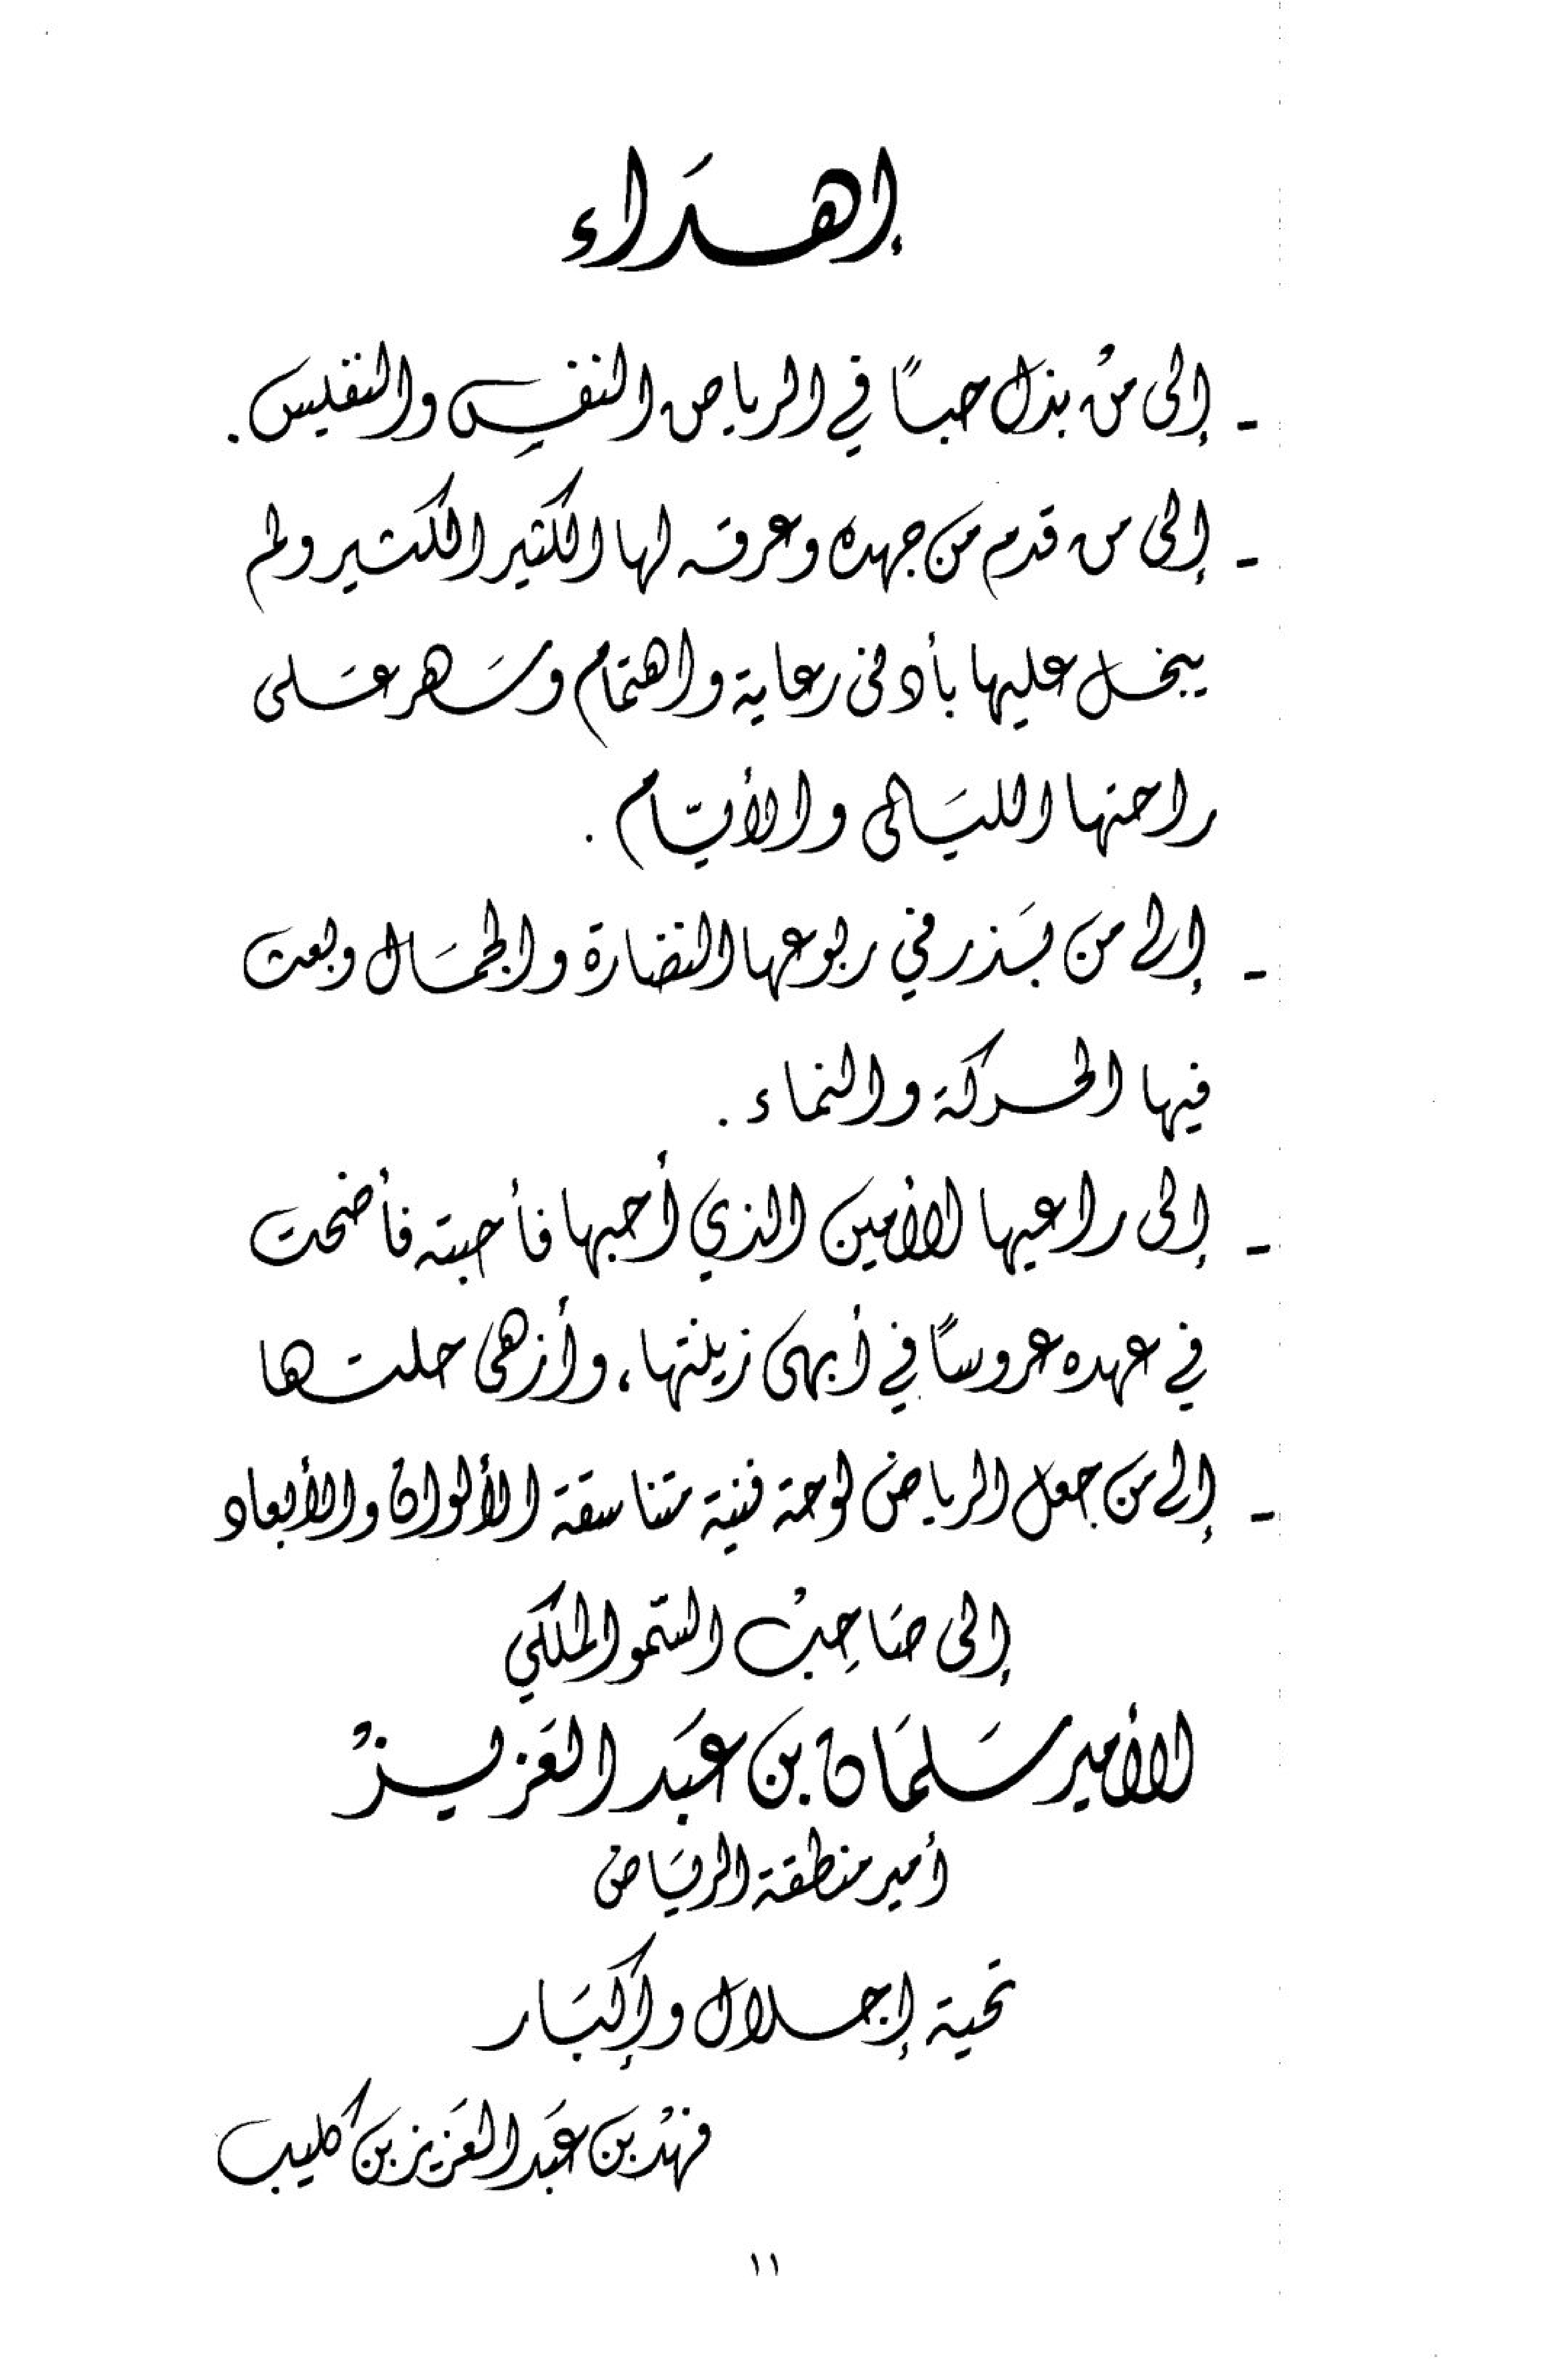 إهداء
- إلى من بذل حباً في الرياض النفس والنفيس.
- إلى من قدم من جهده وعرقه لها الكثير الكثير ولم
يبخل عليها بأدنى رعاية واهتمام وسهر على
راحتها الليالي والأيام.
- إلى من بذر في ربوعها النضارة والجمال وبعث
فيها الحركة والنماء.
- إلى راعيها الأمين الذي أحبها فأحبته فأضحت
في عهده عروساً في أبهى زينتها، وأزهى حلتها
- إلى من جعل الرياض لوحة فنية متناسقة الألوان والأبعاد
إلى صاحب السمو الملكي
الأمير سلمان بن عبد العزيز
أمير منطقة الرياض
تحية إجلال وإكبار
فهد بن عبد العزيز بن كليب
١١